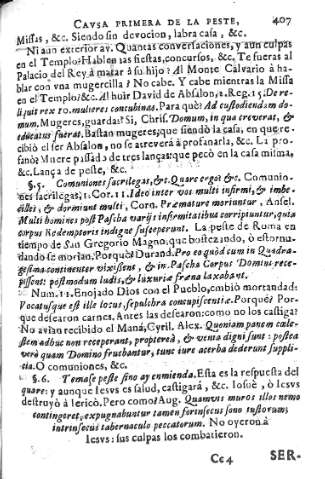 CAVSA PRIMERA DE LA PESTE, 407
Missas, &c. Siendo sin devocion, labra casa, &c.
Ni aun exterior av. Quantas conversaciones, y aun culpas
en el Templo? Hablen las fiestas, concursos, &c. Te fueras al
Palacio del Rey, à matar à su hijo? Al Monte Calvario à ha-
blar con vna mugercilla? No cabe. Y cabe mientras la Missa
en el Templo? &c. Al huir David de Absalon, 2. Reg. 15. De re-
liquit rex 10. mulieres concubinas. Para què? Ad custodiendam do-
mum. Mugeres, guardas? Si, Chris. Domum, in qua creverat, &
educatus fuerat. Bastan mugeres; que siendo la casa, en que re-
cibiò el ser Absalon, no se atreverà à profanarla, &c. La pro-
fanò? Muere passado de tres lanças; que pecò en la casa misma,
&c. Lança de peste, &c.
§. 5. Comuniones sacrilegas, &c. Quare ergo? &c. Comunio-
nes sacrilegas; 1. Cor. 11. Ideo inter vos multi infirmi, & imbe-
cilles, & dormiunt multi, Corn. Præmature moriuntur, Ansel.
Multi homines post Pascha varijs infirmitatibus corripiuntur, quia
corpus Redemptoris indigne susceperunt. La peste de Roma en
tiempo de San Gregorio Magno, que bostezando, ò estornu-
dando se morian. Porquè? Durand. Pro eo quòd cum in Quadra-
gesima continenter vixissent, & in Pascha Corpus Domini rece-
pissent: postmodum ludis, & luxuriæ fræna laxabant.
Num. 11. Enojado Dios con el Pueblo, embiò mortandad:
Vocatusque est ille locus, sepulchra concupiscentiæ. Porquè? Por-
que desearon carnes. Antes las desearon: como no los castiga?
No avian recibido el Manà, Cyril. Alex. Quoniam panem cale-
stem adhuc non receperant, proptereà, & venia digni sunt: postea
verò quam Domino fruebantur, tunc iure acerba dederunt suppli-
tia. O comuniones, &c.
§. 6. Tomase peste sino ay enmienda. Esta es la respuesta del
quare: y aunque Iesvs es salud, castigarà, &c. Iosuè, ò Iesvs
destruyò à Iericò. Pero como? Aug. Quamvis muros illos nemo
contingeret, expugnabuntur tamen forinsecus sono tustorum,
intrinsecus tabernaculo peccatorum. No oyeron à
Iesvs: sus culpas los combatieron.
Cc 4 SER-